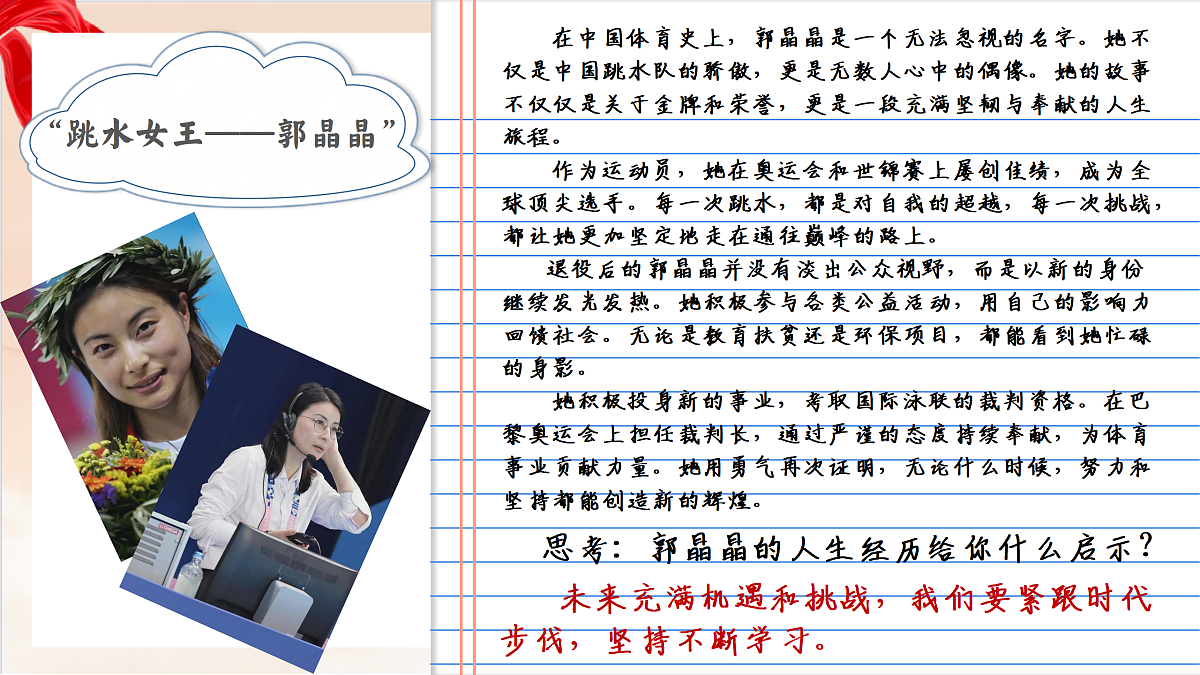 “跳水女王——郭晶晶”
在中国体育史上，郭晶晶是一个无法忽视的名字。她不
仅是中国跳水队的骄傲，更是无数人心中的偶像。她的故事
不仅仅是关于金牌和荣誉，更是一段充满坚韧与奉献的人生
旅程。
作为运动员，她在奥运会和世锦赛上屡创佳绩，成为全
球顶尖选手。每一次跳水，都是对自我的超越，每一次挑战，
都让她更加坚定地走在通往巅峰的路上。
退役后的郭晶晶并没有淡出公众视野，而是以新的身份
继续发光发热。她积极参与各类公益活动，用自己的影响力
回馈社会。无论是教育扶贫还是环保项目，都能看到她忙碌
的身影。
她积极投身新的事业，考取国际泳联的裁判资格。在巴
黎奥运会上担任裁判长，通过严谨的态度持续奉献，为体育
事业贡献力量。她用勇气再次证明，无论什么时候，努力和
坚持都能创造新的辉煌。
思考：郭晶晶的人生经历给你什么启示？
未来充满机遇和挑战，我们要紧跟时代
步伐，坚持不断学习。